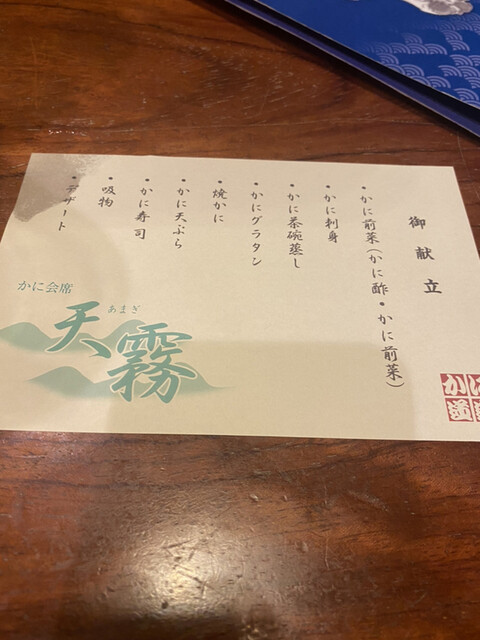 御献立
・かに前菜(かに酢・かに前菜)
・かに刺身
・かに茶碗蒸し
・かにグラタン
・焼かに
・かに天ぷら
・かに寿司
・吸物
・デザート
かに会席
あまぎ
天霧